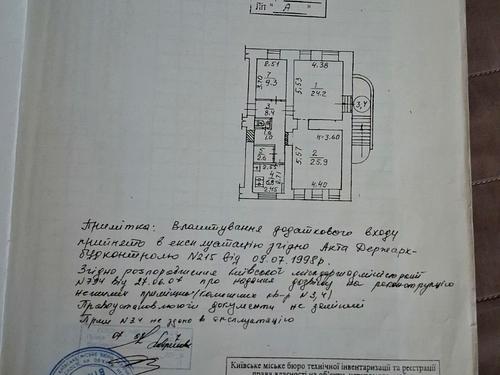 Пп "А"
2.51
4.38
7
9.3
3.70
5.53
1
24.2
3,4
8.4
h=3.60
5.57
2
25.9
2.6
2.71
4.40
2.45
Примітка: Влаштування додаткового входу
прийнято в експлуатацію згідно Акта Держарх-
будконтролю №215 від 09.07.1998р.
Згідно розпорядження Київської міськдержадміністрації
від 27.06.07 про надання дозволу на реконструкцію
нежилих приміщень /колишніх кв-р №3,4/
Правоустановлюючі документи не замінені
Прим №34 не здано в експлуатацію
Київське міське бюро технічної інвентаризації та реєстрації
права власності на об'єкти